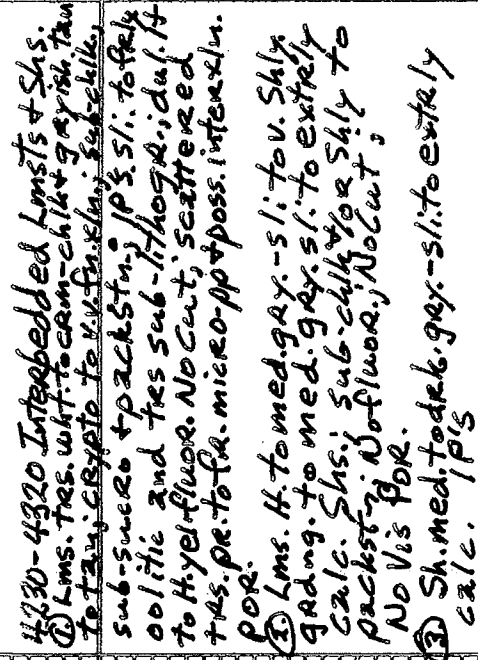 4230-4320 Interbedded Lmsts + Shs.
① Lms. trs. wht to crm-chlk + grayish tan
to tan; crypto to v.v.fn. xln; sub-chlk,
sub-sucro + packstn.; IP'S sli. to frly
oolitic and trs sub-lithogr.; dul. lt
to lt. yel fluor. No Cut; scattered
trs. pr. to fr. micro-pp + poss. interxln.
POR.
② Lms. lt. to med. gry. - sli to v. Shly.
grdng. to med. gry. sli. to extrely
calc. Shs.; sub-chlk + or Shly to
packst?; No fluor.; No Cut;
No Vis POR.
③ Sh. med. to drk. gry. - sli. to extrely
calc. IP'S